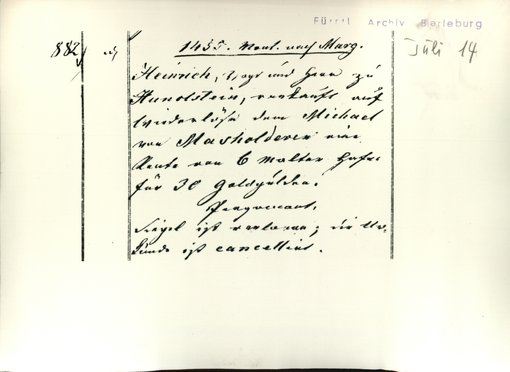 Fürstl. Archiv Berleburg
882
Juli 14
1455. Mont. nach Marg.
Heinrich, Vogt und Herr zu
Hunolstein, verkauft auf
Wiederlöse dem Michael
von Masholderen eine
Rente von 6 Malter Hafer
für 30 Goldgülden.
Pergament,
Siegel ist verloren; die Ur-
kunde ist cancellirt.